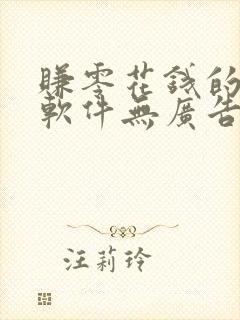 賺零花錢的
軟件無廣告
汪莉玲